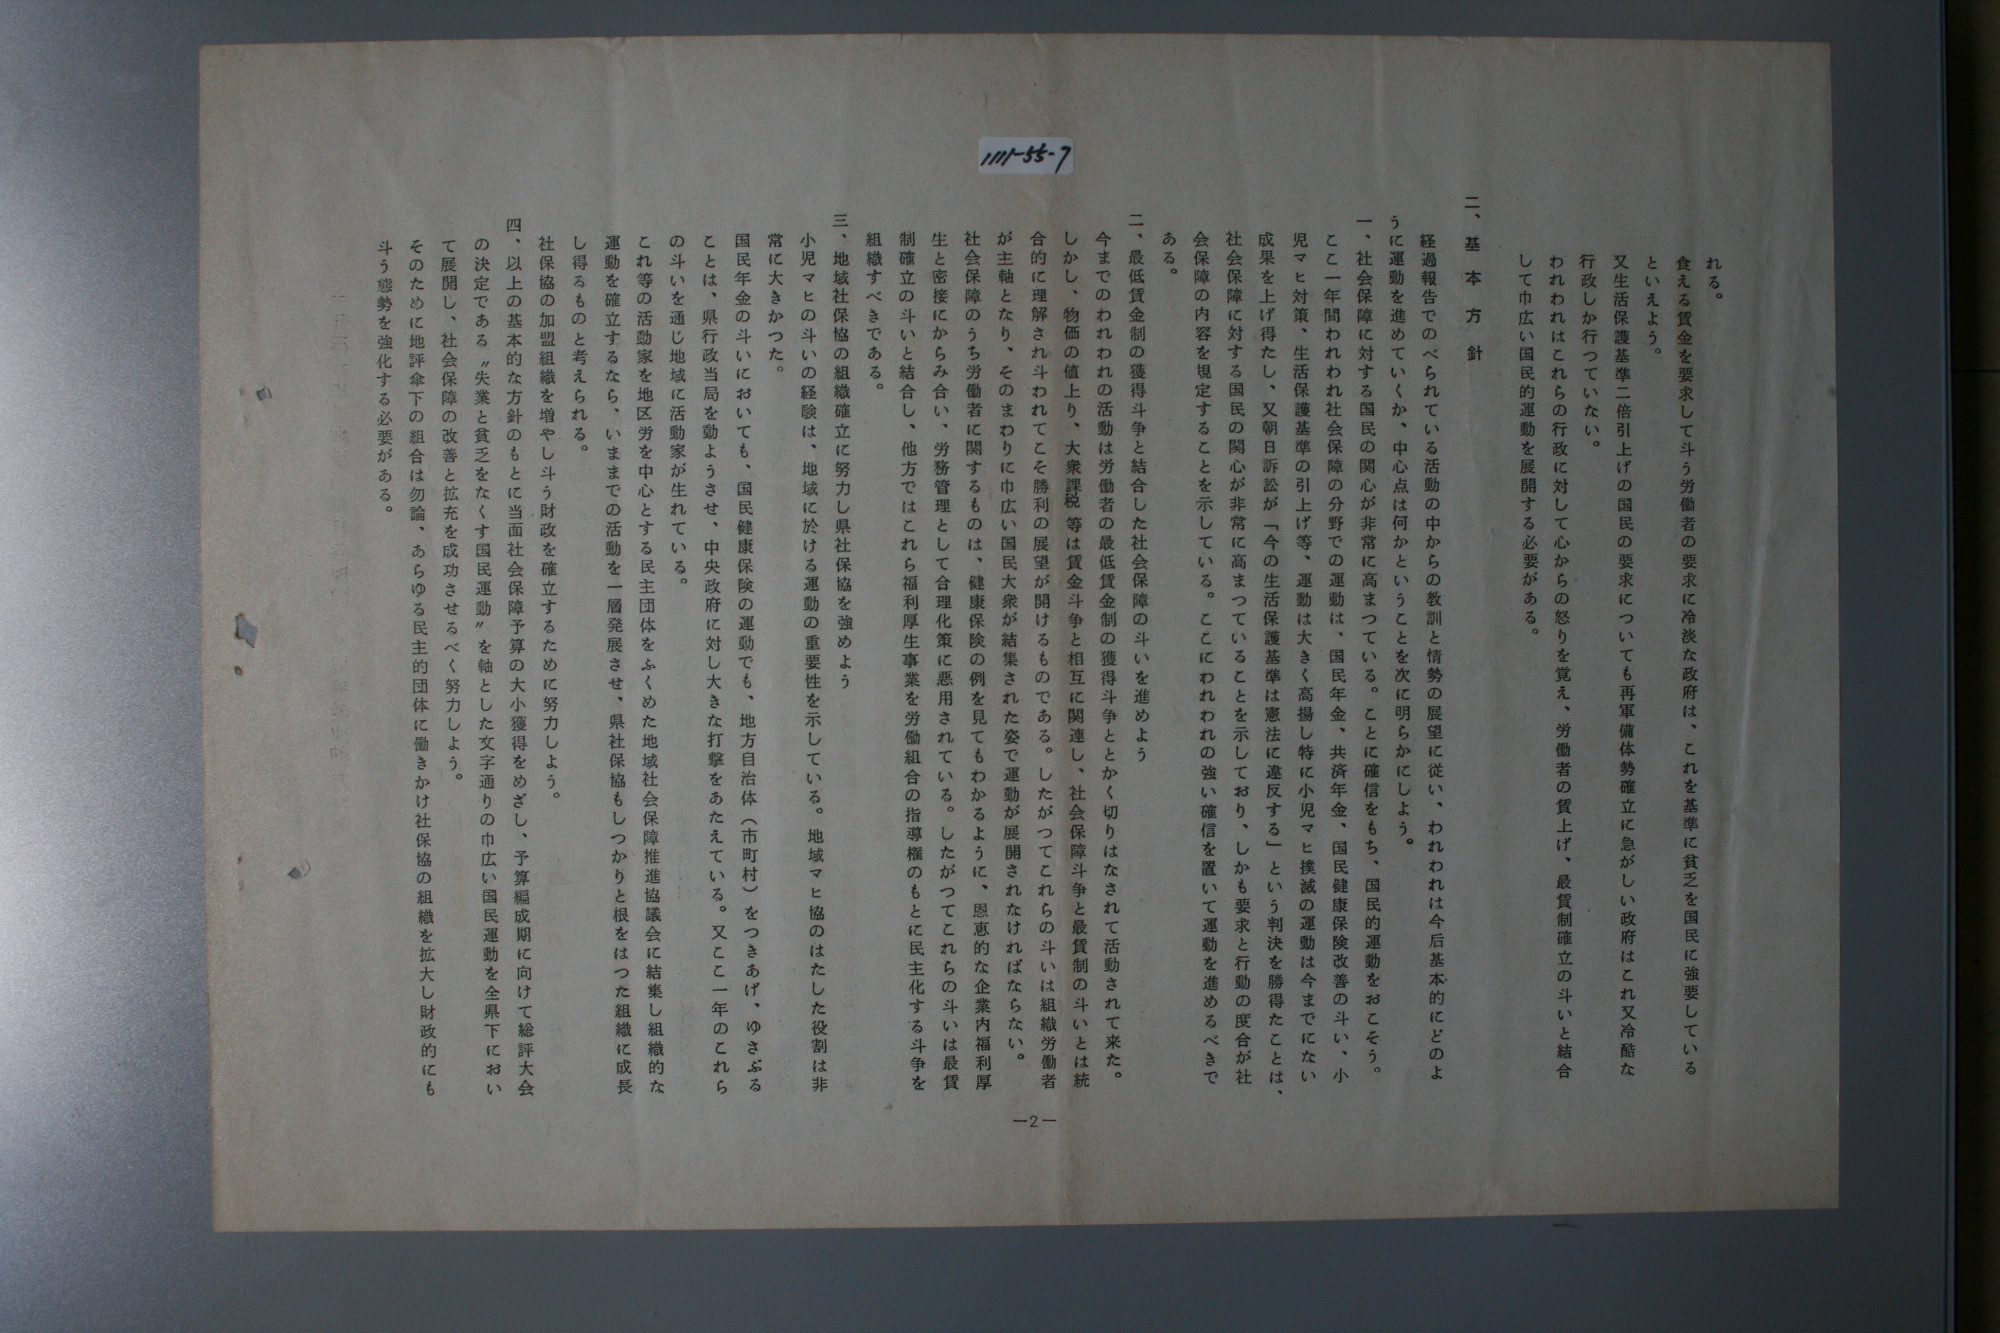 1111-55-7
れる。
食える賃金を要求して斗う労働者の要求に冷淡な政府は、これを基準に貧乏を国民に強要している
といえよう。
又生活保護基準二倍引上げの国民の要求についても再軍備体勢確立に急がしい政府はこれ又冷酷な
行政しか行つていない。
われわれはこれらの行政に対して心からの怒りを覚え、労働者の賃上げ、最賃制確立の斗いと結合
して巾広い国民的運動を展開する必要がある。
二、基本方針
経過報告でのべられている活動の中からの教訓と情勢の展望に従い、われわれは今后基本的にどのよ
うに運動を進めていくか、中心点は何かということを次に明らかにしよう。
一、社会保障に対する国民の関心が非常に高まつている。ことに確信をもち、国民的運動をおこそう。
ここ一年間われわれ社会保障の分野での運動は、国民年金、共済年金、国民健康保険改善の斗い、小
児マヒ対策、生活保護基準の引上げ等、運動は大きく高揚し特に小児マヒ撲滅の運動は今までにない
成果を上げ得たし、又朝日訴訟が「今の生活保護基準は憲法に違反する」という判決を勝得たことは、
社会保障に対する国民の関心が非常に高まつていることを示しており、しかも要求と行動の度合が社
会保障の内容を規定することを示している。ここにわれわれの強い確信を置いて運動を進めるべきで
ある。
二、最低賃金制の獲得斗争と結合した社会保障の斗いを進めよう
今までのわれわれの活動は労働者の最低賃金制の獲得斗争ととかく切りはなされて活動されて来た。
しかし、物価の値上り、大衆課税等は賃金斗争と相互に関連し、社会保障斗争と最賃制の斗いとは統
合的に理解され斗われてこそ勝利の展望が開けるものである。したがつてこれらの斗いは組織労働者
が主軸となり、そのまわりに巾広い国民大衆が結集された姿で運動が展開されなければならない。
社会保障のうち労働者に関するものは、健康保険の例を見てもわかるように、恩恵的な企業内福利厚
生と密接にからみ合い、労務管理として合理化策に悪用されている。したがつてこれらの斗いは最賃
制確立の斗いと結合し、他方ではこれら福利厚生事業を労働組合の指導権のもとに民主化する斗争を
組織すべきである。
三、地域社保協の組織確立に努力し県社保協を強めよう
小児マヒの斗いの経験は、地域に於ける運動の重要性を示している。地域マヒ協のはたした役割は非
常に大きかつた。
国民年金の斗いにおいても、国民健康保険の運動でも、地方自治体（市町村）をつきあげ、ゆさぶる
ことは、県行政当局を動ようさせ、中央政府に対し大きな打撃をあたえている。又ここ一年のこれら
の斗いを通じ地域に活動家が生れている。
これ等の活動家を地区労を中心とする民主団体をふくめた地域社会保障推進協議会に結集し組織的な
運動を確立するなら、いままでの活動を一層発展させ、県社保協もしつかりと根をはつた組織に成長
し得るものと考えられる。
社保協の加盟組織を増やし斗う財政を確立するために努力しよう。
四、以上の基本的な方針のもとに当面社会保障予算の大小獲得をめざし、予算編成期に向けて総評大会
の決定である〝失業と貧乏をなくす国民運動〟を軸とした文字通りの巾広い国民運動を全県下におい
て展開し、社会保障の改善と拡充を成功させるべく努力しよう。
そのために地評傘下の組合は勿論、あらゆる民主的団体に働きかけ社保協の組織を拡大し財政的にも
斗う態勢を強化する必要がある。
—2—